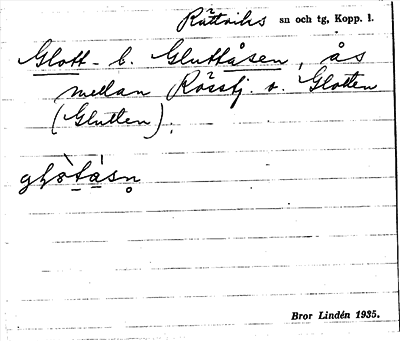 Rättviks sn och tg, Kopp. l.
Glott- l. Gluttåsen, ås
mellan Rösstj. o. Glotten
(Glutten).
Bror Lindén 1935.